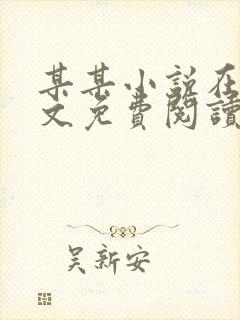 某某小说在
文免費閱讀
吴新安